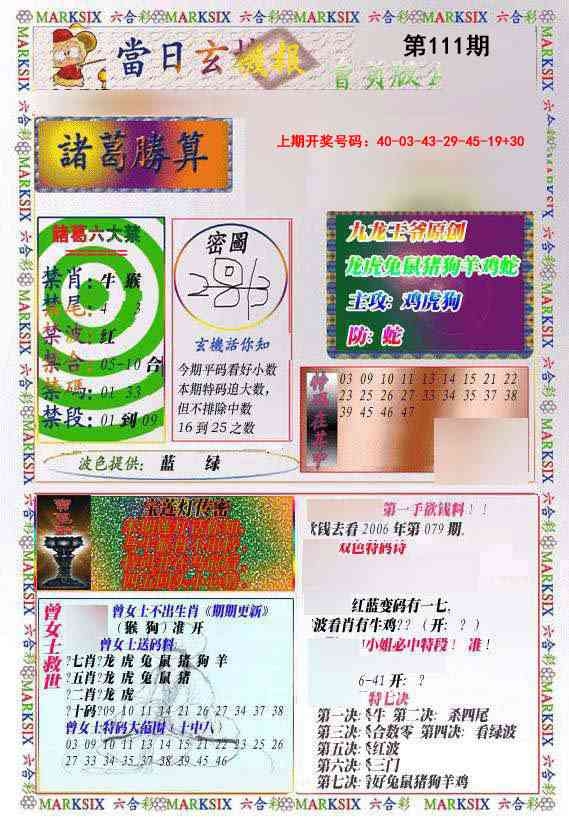 MARKSIX 六合彩 MARKSIX 六合彩 MARKSIX 六合彩 MARKSIX 六合彩
當日玄機報
第111期
諸葛勝算
上期开奖号码：40-03-43-29-45-19+30
諸葛六大禁
禁肖：牛 猴
禁尾：4 3
禁波：红
禁合：05-10 合
禁碼：01 33
禁段：01 到 09
密圖
玄機話你知
今期平码看好小数
本期特码追大数，
但不排除中数
16 到 25 之数
波色提供： 蓝 绿
九龙王爷原创
龙虎兔鼠猪狗羊鸡蛇
主攻：鸡虎狗
防：蛇
03 09 10 11 13 14 15 21 22
23 25 26 27 34 35 37 38
39 45 46 47
宝莲灯传密
第一手欲钱料！！
欠钱去看 2006 年第 079 期.
双色特码诗
红蓝变码有一七,
波看肖有牛鸡?? （开：？）
小姐必中特段！ 准！
6-41 开：？
特七决
第一决:杀牛 第二决: 杀四尾
第三决:杀合数零 第四决: 看绿波
第五决:杀红波
第六决:杀三门
第七决:看好兔鼠猪狗羊鸡
曾女士救世
曾女士不出生肖《期期更新》
（猴 狗）准 开
曾女士送码料
?七肖?龙 虎 兔 鼠 猪 狗 羊
?五肖?龙 虎 兔 鼠 猪
?二肖?龙 虎
?十码?09 10 11 14 21 26 27 34 37 38
曾女士特码大范围：十中八
03 09 10 11 13 14 15 21 22 23 25 26
27 33 34 35 37 38 39 45 46
MARKSIX 六合彩 MARKSIX 六合彩 MARKSIX 六合彩 MARKSIX 六合彩